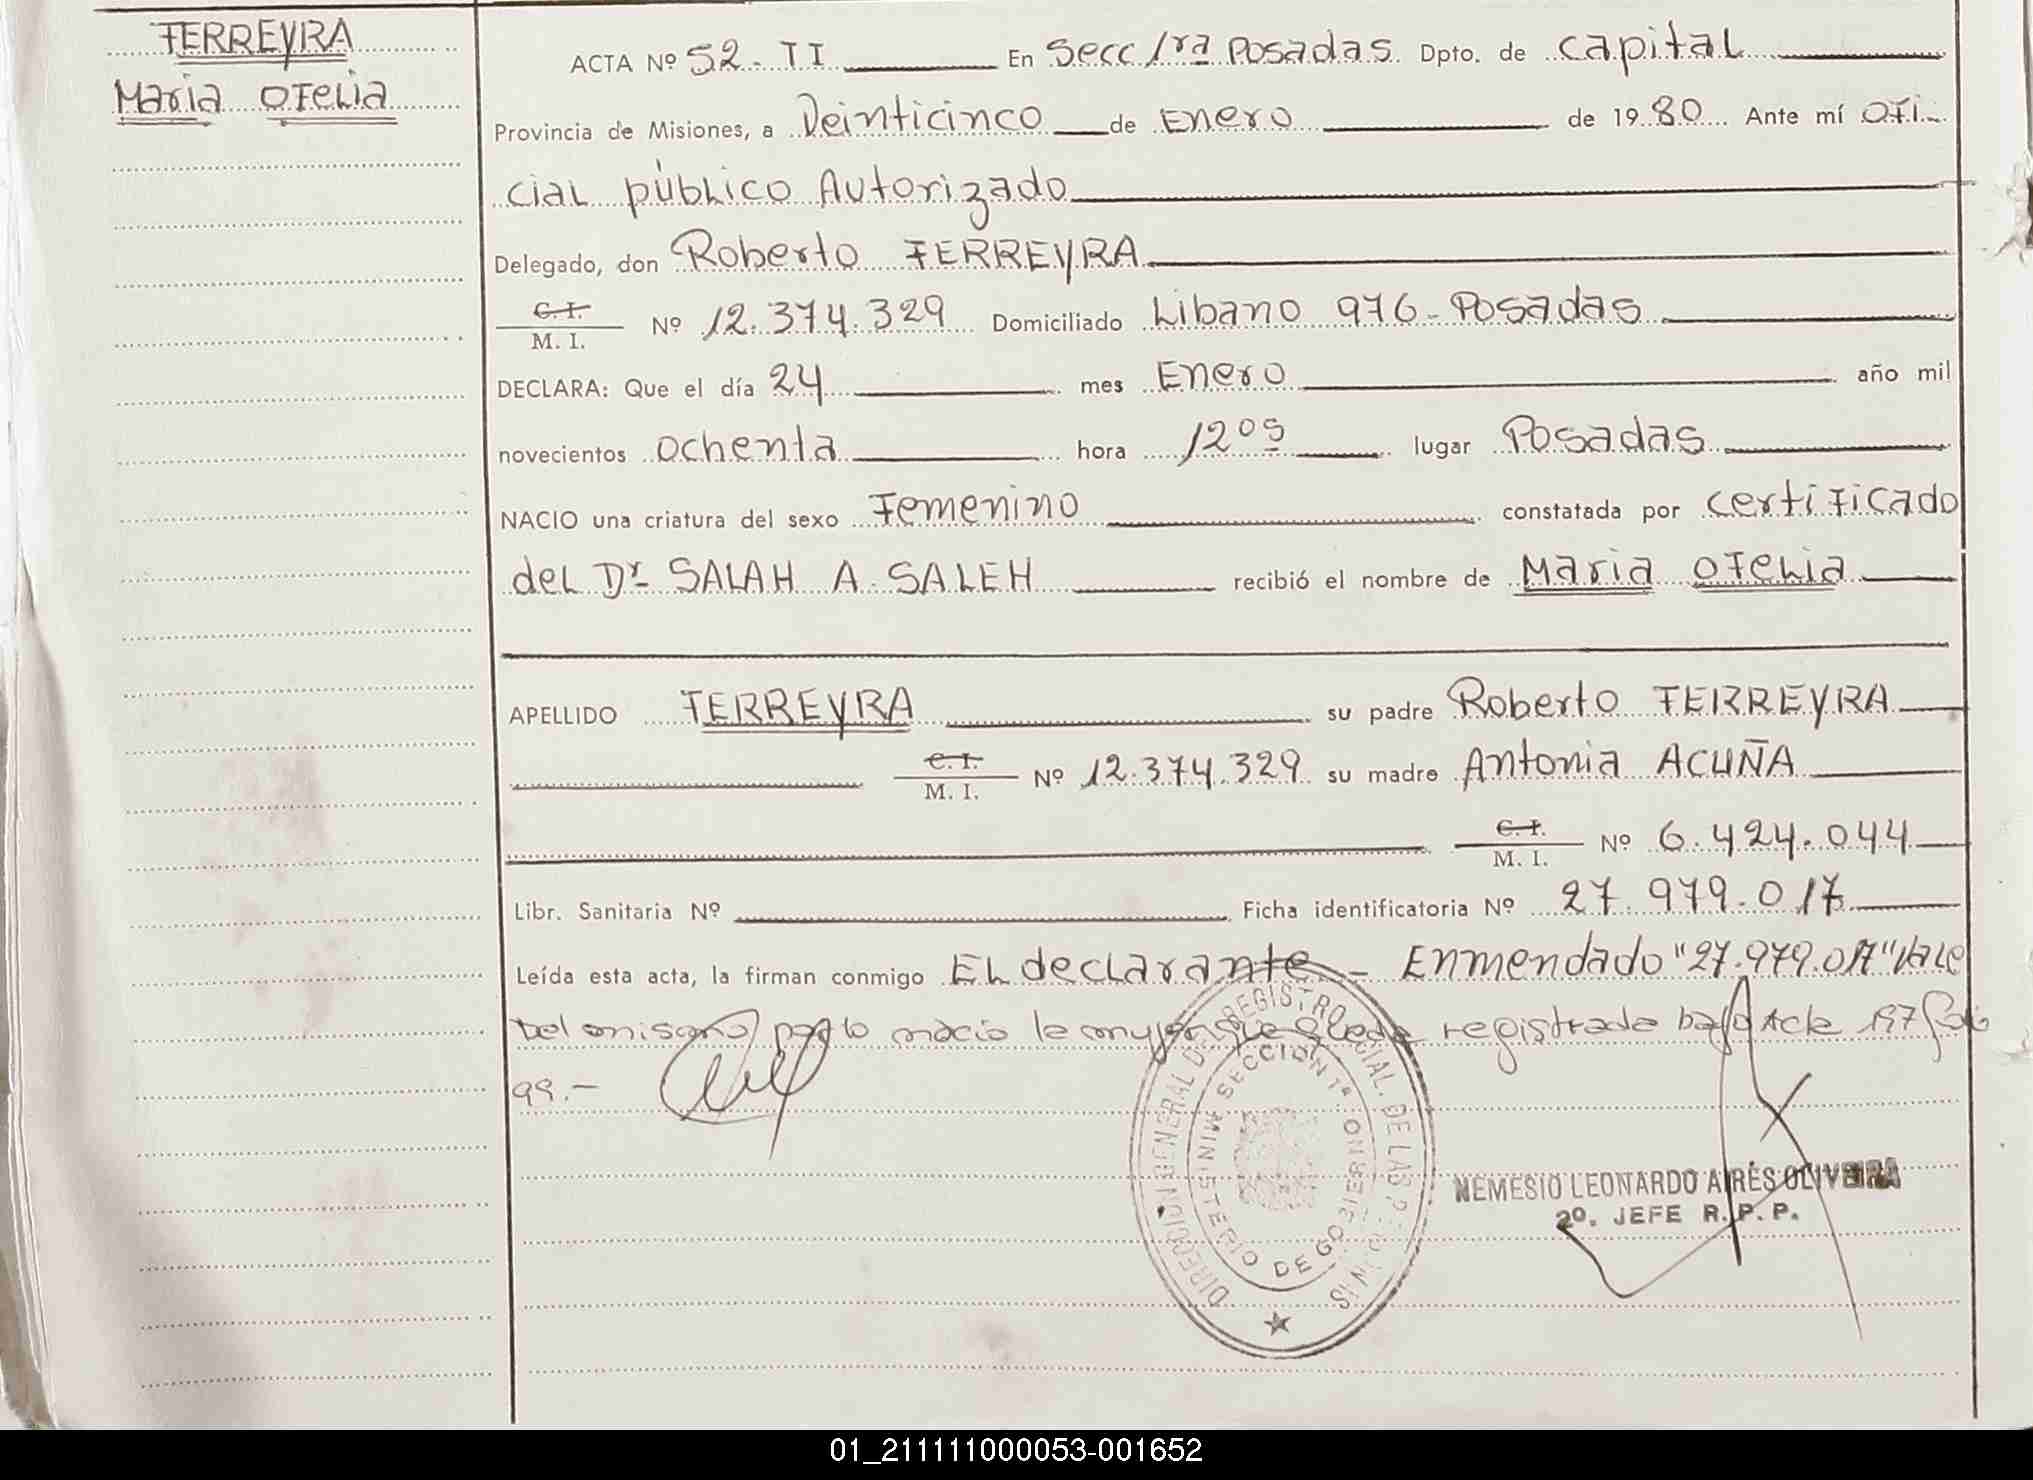 FERREYRA
Maria Ofelia
ACTA Nº 52. TI En Secc/1ra Posadas. Dpto. de Capital
Provincia de Misiones, a Veinticinco de Enero de 1980 Ante mí Ofi-
cial público Autorizado
Delegado, don Roberto FERREYRA
C.I.
M. I. Nº 12.374.329 Domiciliado Libano 976 - Posadas
DECLARA: Que el día 24 mes Enero año mil
novecientos ochenta hora 12 os lugar Posadas
NACIO una criatura del sexo Femenino constatada por certificado
del Dr SALAH A. SALEH recibió el nombre de Maria Ofelia
APELLIDO FERREYRA su padre Roberto FERREYRA
C.I.
M. I. Nº 12.374.329 su madre Antonia ACUÑA
C.I.
M. I. Nº 6.424.044
Libr. Sanitaria Nº Ficha identificatoria Nº 27.979.017
Leída esta acta, la firman conmigo El declarante - Enmendado "27.979.017" Vale
Del mismo parto nacio la que queda registrada bajo Acta 197 folio
99.-
DIRECCION GENERAL DEL REGISTRO PCIAL. DE LAS P
MINISTERIO DE GOBIERNO
SECCION 1ª
NEMESIO LEONARDO AIRES OLIVEIRA
2º. JEFE R. P. P.
01_211111000053-001652